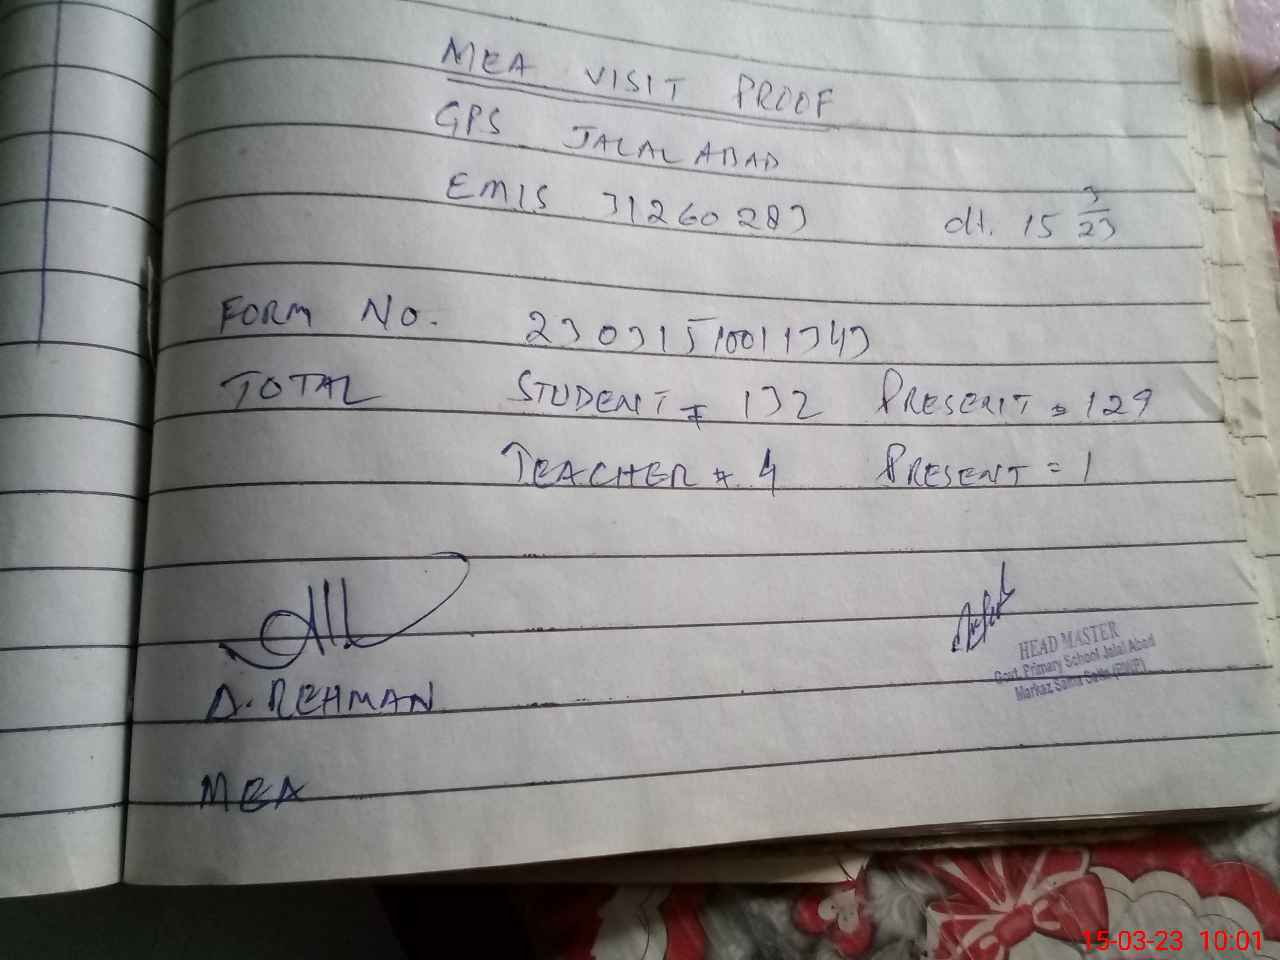 MEA VISIT PROOF
GPS JALALABAD
EMIS 31260283 dt. 15 3/23
FORM No. 23031510011343
TOTAL STUDENT = 132 PRESENT = 129
TEACHER = 4 PRESENT = 1
A. REHMAN
MEA
HEAD MASTER
Govt. Primary School Jalal Abad
Markaz
15-03-23 10:01